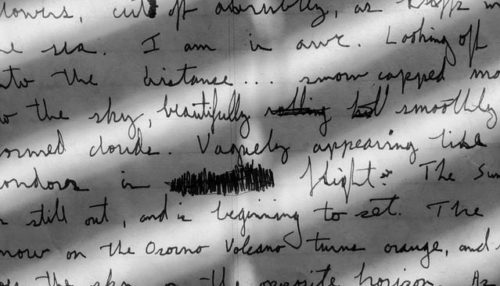 flowers, cut off abruptly, as
us. I am in awe. Looking off
into the distance... snow capped
the sky, beautifully smoothly
formed clouds. Vaguely appearing like
condors in flight. The Sun
is still out, and is beginning to set. The
snow on the Osorno Volcano turns orange, and
the sky on the opposite horizon. As